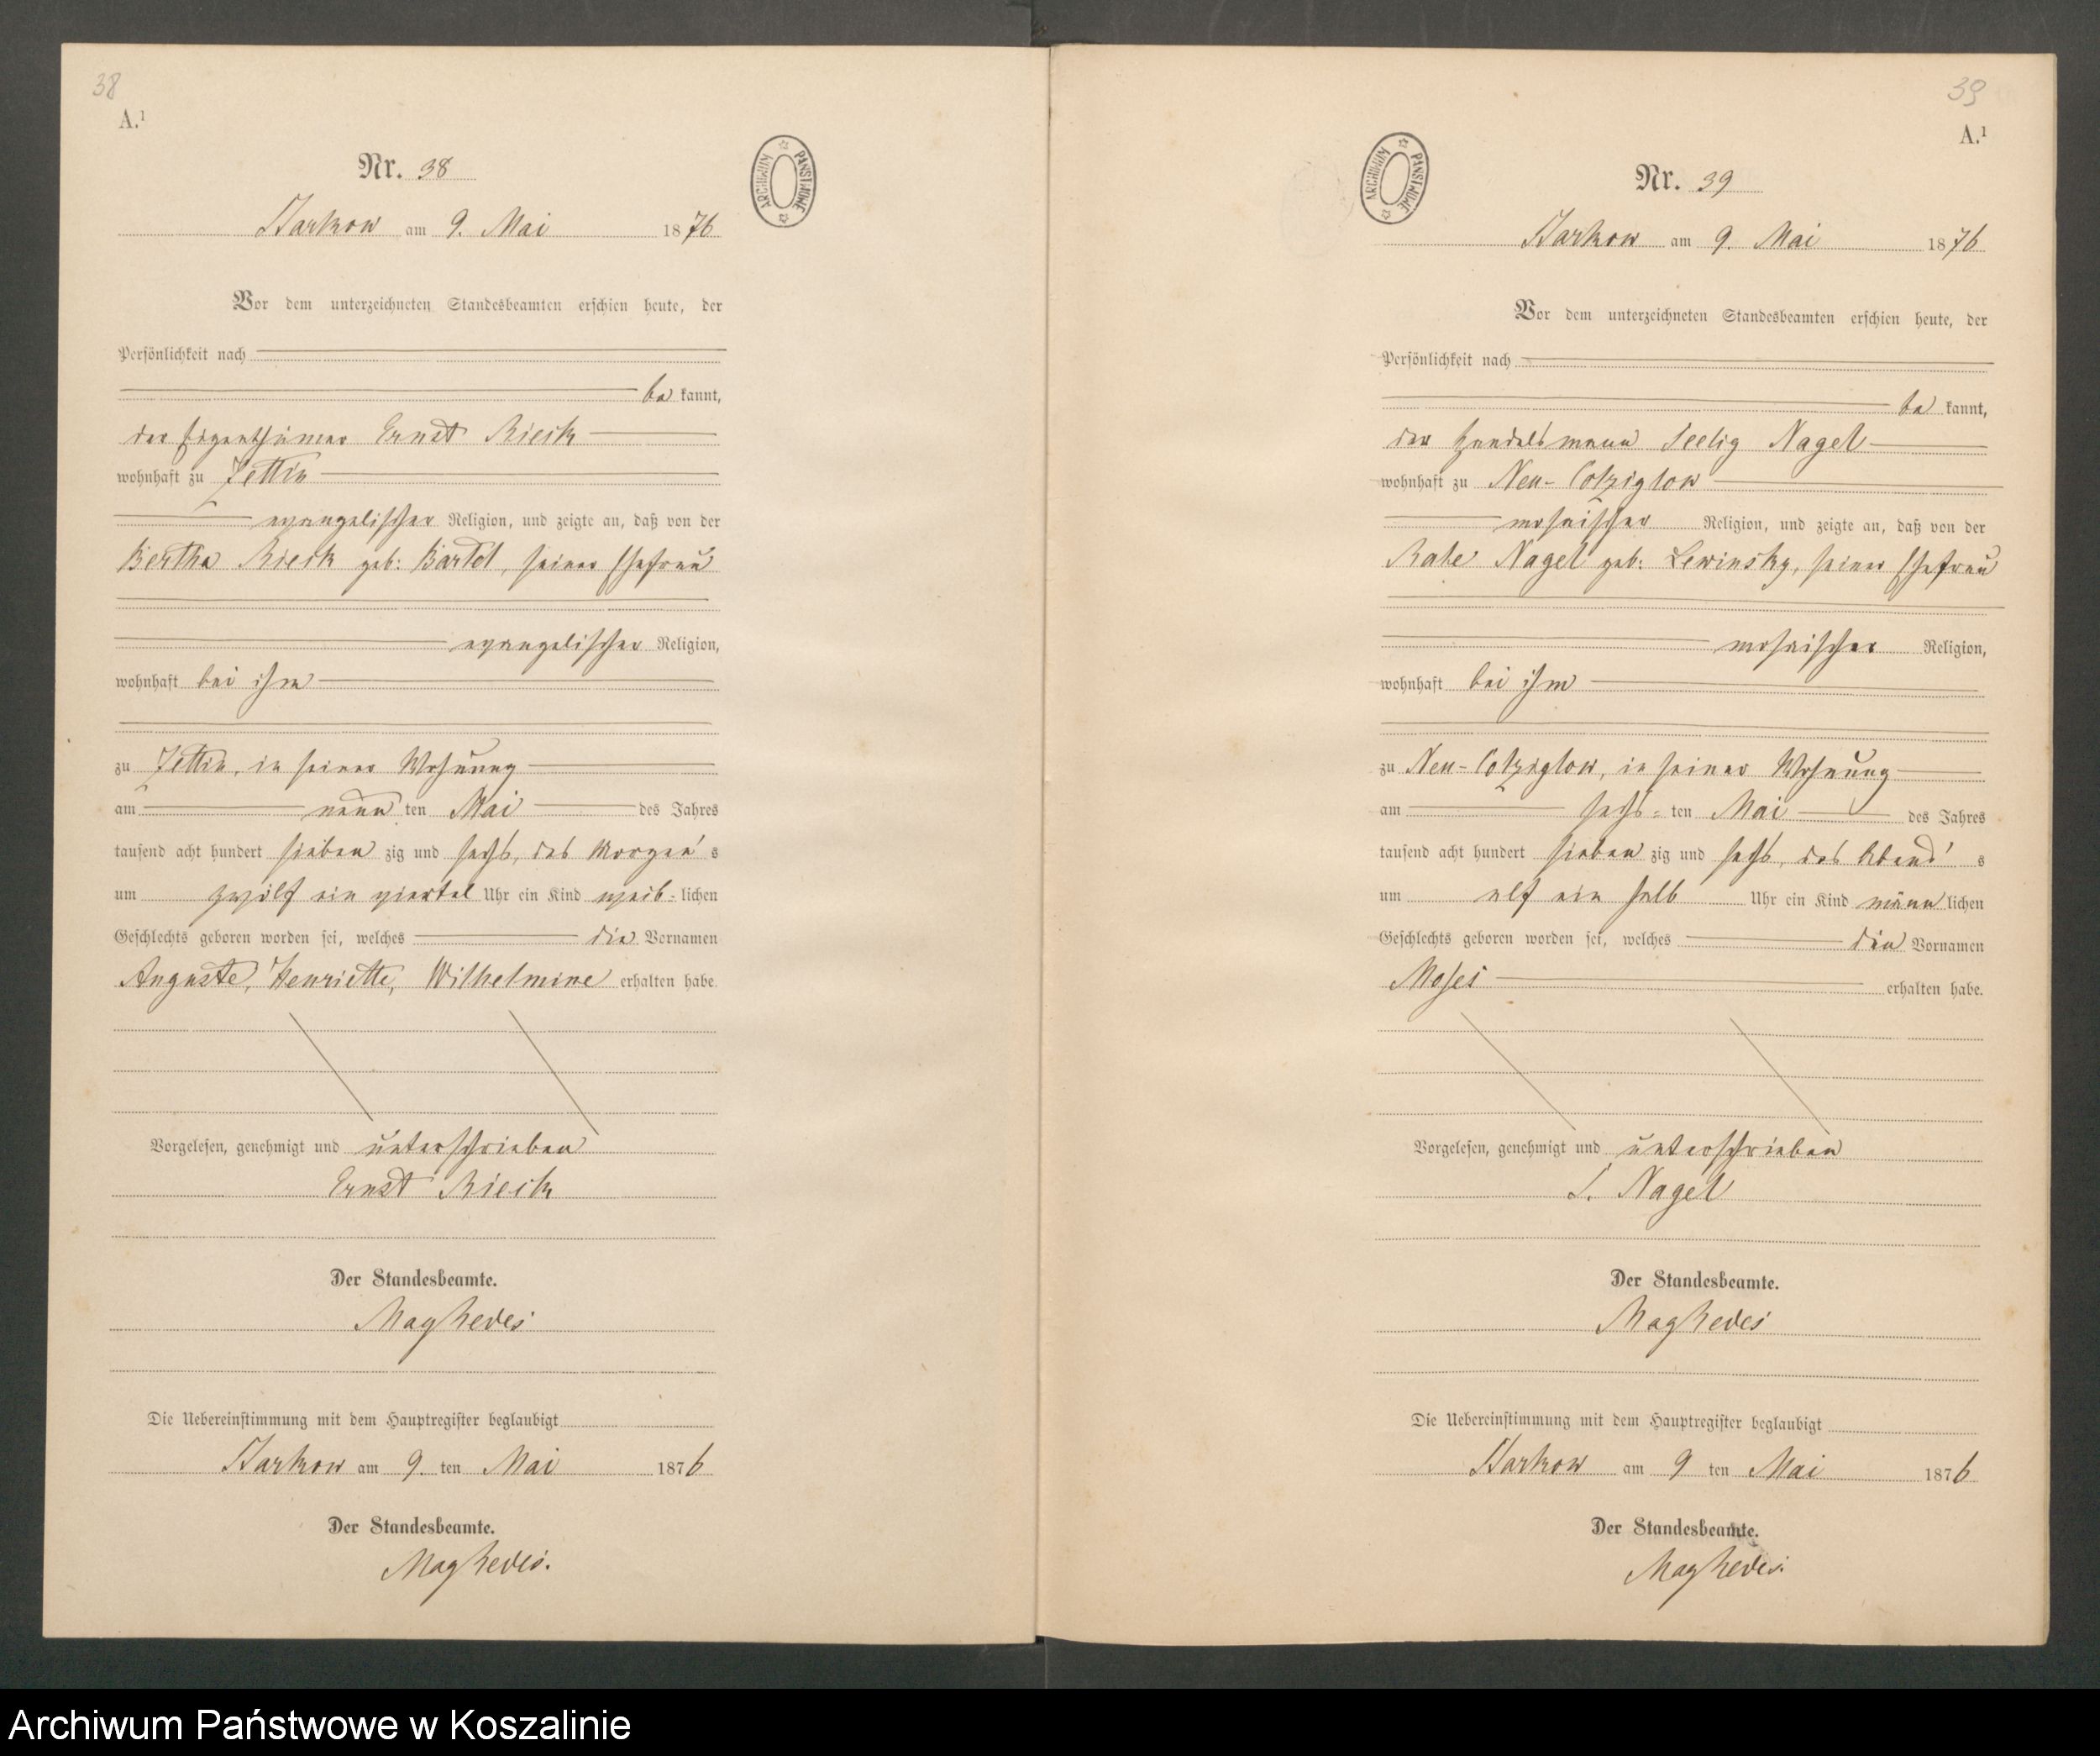 38
A.¹
Nr. 38
ARCHIWUM PAŃSTWOWE
Barkow am 9. Mai 1876
Vor dem unterzeichneten Standesbeamten erschien heute, der
Persönlichkeit nach
be kannt,
der Eigenthümer Ernst Rieck
wohnhaft zu Zettin
evangelischer Religion, und zeigte an, daß von der
Bertha Rieck geb: Bartel, seiner Ehefrau
evangelischer Religion,
wohnhaft bei ihm
zu Zettin, in seiner Wohnung
am neun ten Mai des Jahres
tausend acht hundert sieben zig und sechs, des Morgen's
um zwölf ein viertel Uhr ein Kind weib-lichen
Geschlechts geboren worden sei, welches die Vornamen
Auguste, Henriette, Wilhelmine erhalten habe.
Vorgelesen, genehmigt und unterschrieben
Ernst Rieck
Der Standesbeamte.
Die Uebereinstimmung mit dem Hauptregister beglaubigt
Barkow am 9. ten Mai 1876
Der Standesbeamte.
39
A.¹
Nr. 39
ARCHIWUM PAŃSTWOWE
Barkow am 9. Mai 1876
Vor dem unterzeichneten Standesbeamten erschien heute, der
Persönlichkeit nach
be kannt,
der Handelsmann Seelig Nagel
wohnhaft zu Neu-Cotziglow
mosaischer Religion, und zeigte an, daß von der
Nagel geb: Lewinsky, seiner Ehefrau
mosaischer Religion,
wohnhaft bei ihm
zu Neu-Cotziglow, in seiner Wohnung
am sechs-ten Mai des Jahres
tausend acht hundert sieben zig und sechs, des Abend's
um elf ein halb Uhr ein Kind männ lichen
Geschlechts geboren worden sei, welches den Vornamen
Moses erhalten habe.
Vorgelesen, genehmigt und unterschrieben
S. Nagel
Der Standesbeamte.
Die Uebereinstimmung mit dem Hauptregister beglaubigt
Barkow am 9 ten Mai 1876
Der Standesbeamte.
Archiwum Państwowe w Koszalinie